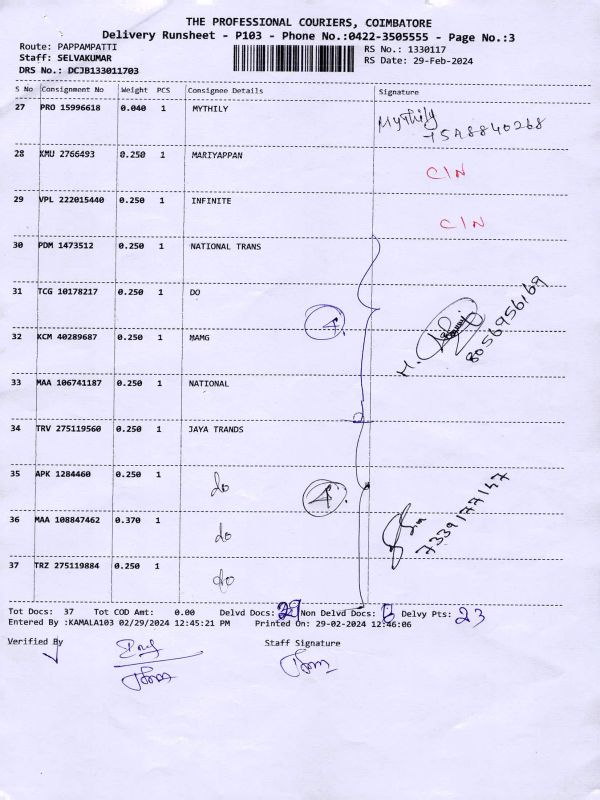 THE PROFESSIONAL COURIERS, COIMBATORE
Delivery Runsheet - P103 - Phone No.:0422-3505555 - Page No.:3
Route: PAPPAMPATTI RS No.: 1330117
Staff: SELVAKUMAR RS Date: 29-Feb-2024
DRS No.: DCJB133011703
S No Consignment No Weight PCS Consignee Details Signature
27 PRO 15996618 0.040 1 MYTHILY Mythily
28 KMU 2766493 0.250 1 MARIYAPPAN C/N
29 VPL 222015440 0.250 1 INFINITE C/N
30 PDM 1473512 0.250 1 NATIONAL TRANS
31 TCG 10178217 0.250 1 DO
4.
8056956169
32 KCM 40289687 0.250 1 MAMG
33 MAA 106741187 0.250 1 NATIONAL
34 TRV 275119560 0.250 1 JAYA TRANDS
35 APK 1284460 0.250 1 do
4.
7339177147
36 MAA 108847462 0.370 1 do
37 TRZ 275119884 0.250 1 do
Tot Docs: 37 Tot COD Amt: 0.00 Delvd Docs: 29 Non Delvd Docs: Delvy Pts: 23
Entered By :KAMALA103 02/29/2024 12:45:21 PM Printed On: 29-02-2024 12:46:06
Verified By Staff Signature